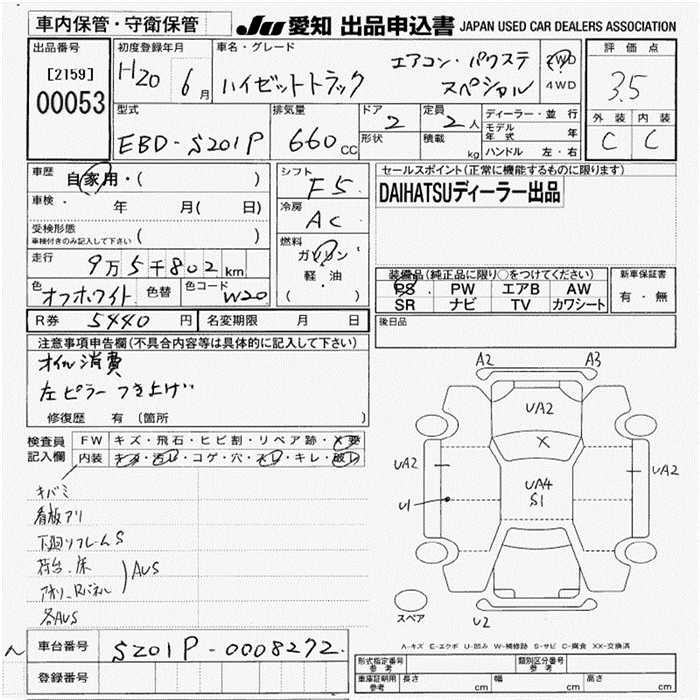 車内保管・守衛保管
JU 愛知 出品申込書 JAPAN USED CAR DEALERS ASSOCIATION
出品番号
[2159]
00053
初度登録年月
H20 6月
車名・グレード
ハイゼットトラック
エアコン・パワステ
スペシャル
2WD
4WD
評価点
3.5
外装 内装
C C
型式
EBD-S201P
排気量
660cc
ドア 2
形状
定員 2人
積載 kg
ディーラー・並行
モデル年式 年
ハンドル 左・右
車歴 自家用・( )
車検・ 年 月( 日)
受検形態
車検付きのみ記入して下さい ( )
走行 9万5千802km
色 オフホワイト 色替 色コード W20
シフト F5
冷房 AC
燃料
ガソリン
軽・油
( )
R券 5440円 名変期限 月 日
セールスポイント(正常に機能するものに限ります)
DAIHATSUディーラー出品
装備品(純正品に限り○をつけてください)
PS PW エアB AW
SR ナビ TV カワシート
新車保証書
有・無
後日品
注意事項申告欄(不具合内容等は具体的に記入して下さい)
オイル消費
左ピラーつき上げ
修復歴 有(箇所 )
検査員
記入欄
FW キズ・飛石・ヒビ割・リペア跡・X要
内装 キズ・汚レ・コゲ・穴・スレ・キレ・破レ
キバミ
看板アリ
下廻リフレームS
荷台・床
アオリ・Rパネル
AUS
各AUS
A2 A3
UA2
X
UA2 UA2
UA4
S1
U1
スペア
U2
A-キズ E-エクボ U-凹み W-補修跡 S-サビ C-腐食 XX-交換済
車台番号 S201P-0008272
登録番号
形式指定番号
参考
類別区分番号
参考
車庫証明用
参考
長さ cm 幅 cm 高さ cm